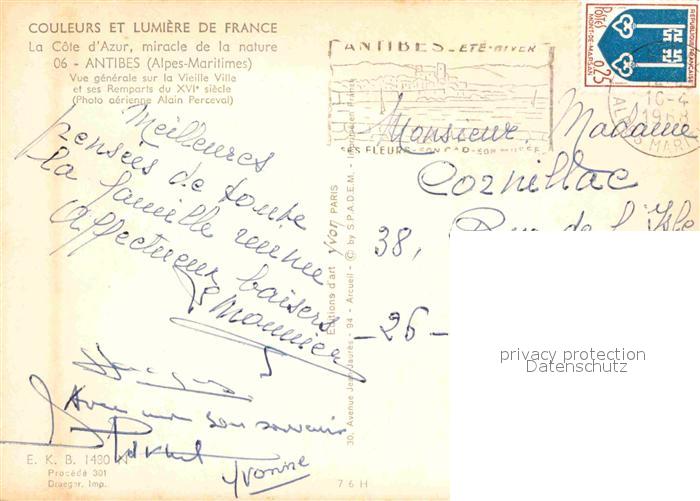 COULEURS ET LUMIÈRE DE FRANCE
La Côte d'Azur, miracle de la nature
06 - ANTIBES (Alpes-Maritimes)
Vue générale sur la Vieille Ville
et ses Remparts du XVIe siècle
(Photo aérienne Alain Perceval)
Meilleures
pensées de toute
la famille réunie
Affectueux baisers
Monnier
Jacques
Avec mon bon souvenir
Yvonne
E. K. B. 1480 N
Procédé 301
Draeger, Imp.
76 H
Editions d'art Yvon PARIS
30, Avenue Jean-Jaurès - 94 - Arcueil - © by S.P.A.D.E.M. - Imprimé en France
ANTIBES - ETE-HIVER
SES FLEURS - SON CAP - SON MUSEE
REPUBLIQUE FRANÇAISE
Postes
0,25
MONT-DE-MARSAN
16-4
1968
ALPES MARIT
Monsieur, Madame
Cornillac
38, Rue de l'Isle
-26-
privacy protection
Datenschutz